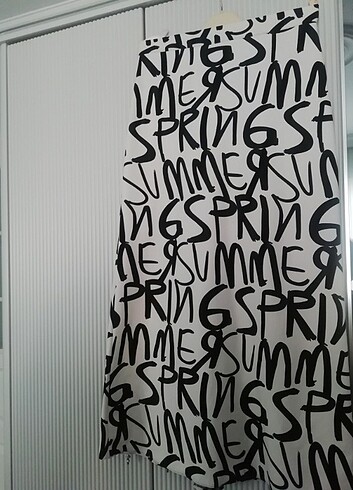 RINGSPR
MMERSUMM
SPRINGSP
SUMMERSUM
RINGSPRING
MERSUMMER
SPRINGSPRIN
MMERSUMME
NGSPRINGS
RSUMMERSU